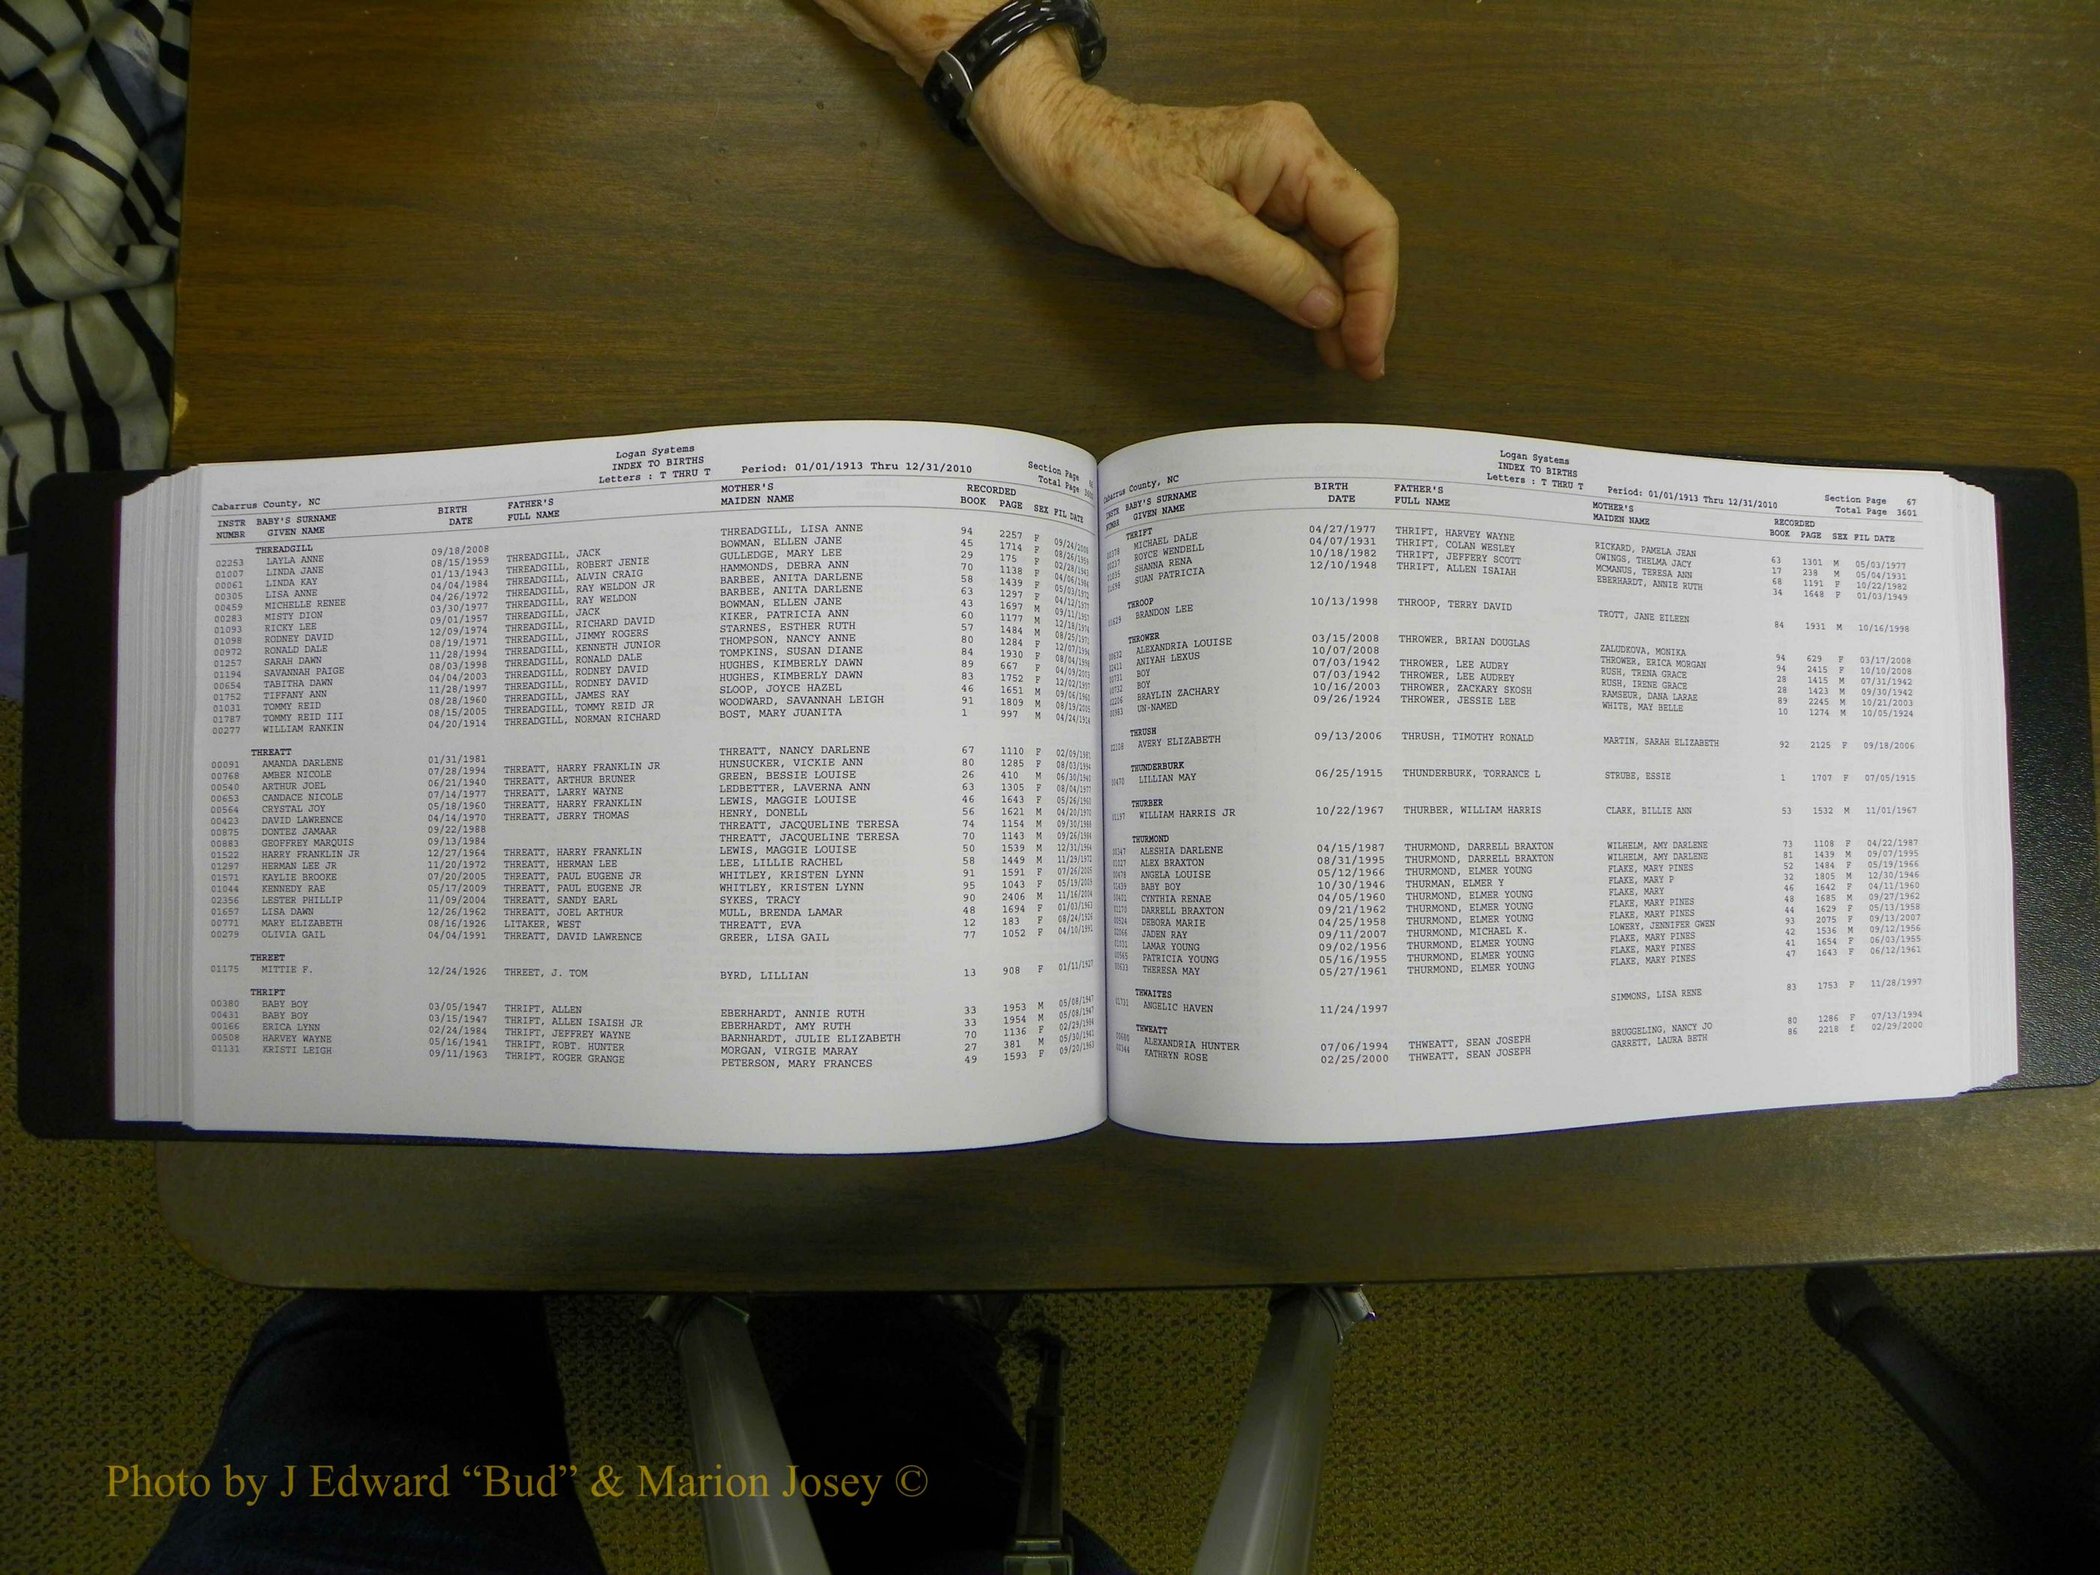 Logan Systems
INDEX TO BIRTHS
Letters : T THRU T Period: 01/01/1913 Thru 12/31/2010
Section Page 66
Total Page
Cabarrus County, NC
INSTR BABY'S SURNAME BIRTH FATHER'S MOTHER'S RECORDED
NUMBR GIVEN NAME DATE FULL NAME MAIDEN NAME BOOK PAGE SEX FIL DATE
THREADGILL
02253 LAYLA ANNE 09/18/2008 THREADGILL, LISA ANNE 94 2257 F 09/24/2008
01007 LINDA JANE 08/15/1959 THREADGILL, JACK BOWMAN, ELLEN JANE 45 1714 F 08/26/1959
00061 LINDA KAY 01/13/1943 THREADGILL, ROBERT JENIE GULLEDGE, MARY LEE 29 175 F 02/28/1943
00305 LISA ANNE 04/04/1984 THREADGILL, ALVIN CRAIG HAMMONDS, DEBRA ANN 70 1138 F 04/06/1984
00459 MICHELLE RENEE 04/26/1972 THREADGILL, RAY WELDON JR BARBEE, ANITA DARLENE 58 1439 F 05/03/1972
00283 MISTY DION 03/30/1977 THREADGILL, RAY WELDON BARBEE, ANITA DARLENE 63 1297 F 04/12/1977
01093 RICKY LEE 09/01/1957 THREADGILL, JACK BOWMAN, ELLEN JANE 43 1697 M 09/11/1957
01098 RODNEY DAVID 12/09/1974 THREADGILL, RICHARD DAVID KIKER, PATRICIA ANN 60 1177 M 12/18/1974
00972 RONALD DALE 08/19/1971 THREADGILL, JIMMY ROGERS STARNES, ESTHER RUTH 57 1484 M 08/25/1971
01257 SARAH DAWN 11/28/1994 THREADGILL, KENNETH JUNIOR THOMPSON, NANCY ANNE 80 1284 F 12/07/1994
01194 SAVANNAH PAIGE 08/03/1998 THREADGILL, RONALD DALE TOMPKINS, SUSAN DIANE 84 1930 F 08/04/1998
00654 TABITHA DAWN 04/04/2003 THREADGILL, RODNEY DAVID HUGHES, KIMBERLY DAWN 89 667 F 04/09/2003
01752 TIFFANY ANN 11/28/1997 THREADGILL, RODNEY DAVID HUGHES, KIMBERLY DAWN 83 1752 F 12/02/1997
01031 TOMMY REID 08/28/1960 THREADGILL, JAMES RAY SLOOP, JOYCE HAZEL 46 1651 M 09/06/1960
01787 TOMMY REID III 08/15/2005 THREADGILL, TOMMY REID JR WOODWARD, SAVANNAH LEIGH 91 1809 M 08/19/2005
00277 WILLIAM RANKIN 04/20/1914 THREADGILL, NORMAN RICHARD BOST, MARY JUANITA 1 997 M 04/24/1914
THREATT
00091 AMANDA DARLENE 01/31/1981 THREATT, NANCY DARLENE 67 1110 F 02/09/1981
00768 AMBER NICOLE 07/28/1994 THREATT, HARRY FRANKLIN JR HUNSUCKER, VICKIE ANN 80 1285 F 08/03/1994
00540 ARTHUR JOEL 06/21/1940 THREATT, ARTHUR BRUNER GREEN, BESSIE LOUISE 26 410 M 06/30/1940
00653 CANDACE NICOLE 07/14/1977 THREATT, LARRY WAYNE LEDBETTER, LAVERNA ANN 63 1305 F 08/04/1977
00564 CRYSTAL JOY 05/18/1960 THREATT, HARRY FRANKLIN LEWIS, MAGGIE LOUISE 46 1643 F 05/26/1960
00423 DAVID LAWRENCE 04/14/1970 THREATT, JERRY THOMAS HENRY, DONELL 56 1621 M 04/20/1970
00875 DONTEZ JAMAAR 09/22/1988 THREATT, JACQUELINE TERESA 74 1154 M 09/30/1988
00883 GEOFFREY MARQUIS 09/13/1984 THREATT, JACQUELINE TERESA 70 1143 M 09/26/1984
01522 HARRY FRANKLIN JR 12/27/1964 THREATT, HARRY FRANKLIN LEWIS, MAGGIE LOUISE 50 1539 M 12/31/1964
01297 HERMAN LEE JR 11/20/1972 THREATT, HERMAN LEE LEE, LILLIE RACHEL 58 1449 M 11/29/1972
01571 KAYLIE BROOKE 07/20/2005 THREATT, PAUL EUGENE JR WHITLEY, KRISTEN LYNN 91 1591 F 07/26/2005
01044 KENNEDY RAE 05/17/2009 THREATT, PAUL EUGENE JR WHITLEY, KRISTEN LYNN 95 1043 F 05/19/2009
02356 LESTER PHILLIP 11/09/2004 THREATT, SANDY EARL SYKES, TRACY 90 2406 M 11/16/2004
01657 LISA DAWN 12/26/1962 THREATT, JOEL ARTHUR MULL, BRENDA LAMAR 48 1694 F 01/03/1963
00771 MARY ELIZABETH 08/16/1926 LITAKER, WEST THREATT, EVA 12 183 F 08/24/1926
00279 OLIVIA GAIL 04/04/1991 THREATT, DAVID LAWRENCE GREER, LISA GAIL 77 1052 F 04/10/1991
THREET
01175 MITTIE F. 12/24/1926 THREET, J. TOM BYRD, LILLIAN 13 908 F 01/11/1927
THRIFT
00380 BABY BOY 03/05/1947 THRIFT, ALLEN EBERHARDT, ANNIE RUTH 33 1953 M 05/08/1947
00431 BABY BOY 03/15/1947 THRIFT, ALLEN ISAISH JR EBERHARDT, AMY RUTH 33 1954 M 05/08/1947
00166 ERICA LYNN 02/24/1984 THRIFT, JEFFREY WAYNE BARNHARDT, JULIE ELIZABETH 70 1136 F 02/29/1984
00508 HARVEY WAYNE 05/16/1941 THRIFT, ROBT. HUNTER MORGAN, VIRGIE MARAY 27 381 M 05/30/1941
01131 KRISTI LEIGH 09/11/1963 THRIFT, ROGER GRANGE PETERSON, MARY FRANCES 49 1593 F 09/20/1963
Logan Systems
INDEX TO BIRTHS
Letters : T THRU T Period: 01/01/1913 Thru 12/31/2010
Section Page 67
Total Page 3601
Cabarrus County, NC
INSTR BABY'S SURNAME BIRTH FATHER'S MOTHER'S RECORDED
NUMBR GIVEN NAME DATE FULL NAME MAIDEN NAME BOOK PAGE SEX FIL DATE
THRIFT
00378 MICHAEL DALE 04/27/1977 THRIFT, HARVEY WAYNE RICKARD, PAMELA JEAN 63 1301 M 05/03/1977
00237 ROYCE WENDELL 04/07/1931 THRIFT, COLAN WESLEY OWINGS, THELMA JACY 17 238 M 05/04/1931
01035 SHANNA RENA 10/18/1982 THRIFT, JEFFERY SCOTT MCMANUS, TERESA ANN 68 1191 F 10/22/1982
01698 SUAN PATRICIA 12/10/1948 THRIFT, ALLEN ISAIAH EBERHARDT, ANNIE RUTH 34 1648 F 01/03/1949
THROOP
01629 BRANDON LEE 10/13/1998 THROOP, TERRY DAVID TROTT, JANE EILEEN 84 1931 M 10/16/1998
THROWER
00632 ALEXANDRIA LOUISE 03/15/2008 THROWER, BRIAN DOUGLAS ZALUDKOVA, MONIKA 94 629 F 03/17/2008
02411 ANIYAH LEXUS 10/07/2008 THROWER, ERICA MORGAN 94 2415 F 10/10/2008
00731 BOY 07/03/1942 THROWER, LEE AUDRY RUSH, TRENA GRACE 28 1415 M 07/31/1942
00732 BOY 07/03/1942 THROWER, LEE AUDREY RUSH, IRENE GRACE 28 1423 M 09/30/1942
02206 BRAYLIN ZACHARY 10/16/2003 THROWER, ZACKARY SKOSH RAMSEUR, DANA LARAE 89 2245 M 10/21/2003
00983 UN-NAMED 09/26/1924 THROWER, JESSIE LEE WHITE, MAY BELLE 10 1274 M 10/05/1924
THRUSH
02108 AVERY ELIZABETH 09/13/2006 THRUSH, TIMOTHY RONALD MARTIN, SARAH ELIZABETH 92 2125 F 09/18/2006
THUNDERBURK
00470 LILLIAN MAY 06/25/1915 THUNDERBURK, TORRANCE L STRUBE, ESSIE 1 1707 F 07/05/1915
THURBER
01197 WILLIAM HARRIS JR 10/22/1967 THURBER, WILLIAM HARRIS CLARK, BILLIE ANN 53 1532 M 11/01/1967
THURMOND
00347 ALESHIA DARLENE 04/15/1987 THURMOND, DARRELL BRAXTON WILHELM, AMY DARLENE 73 1108 F 04/22/1987
01027 ALEX BRAXTON 08/31/1995 THURMOND, DARRELL BRAXTON WILHELM, AMY DARLENE 81 1439 M 09/07/1995
00478 ANGELA LOUISE 05/12/1966 THURMOND, ELMER YOUNG FLAKE, MARY PINES 52 1484 F 05/19/1966
01439 BABY BOY 10/30/1946 THURMAN, ELMER Y FLAKE, MARY P 32 1805 M 12/30/1946
00401 CYNTHIA RENAE 04/05/1960 THURMOND, ELMER YOUNG FLAKE, MARY 46 1642 F 04/11/1960
01170 DARRELL BRAXTON 09/21/1962 THURMOND, ELMER YOUNG FLAKE, MARY PINES 48 1685 M 09/27/1962
00524 DEBORA MARIE 04/25/1958 THURMOND, ELMER YOUNG FLAKE, MARY PINES 44 1629 F 05/13/1958
02066 JADEN RAY 09/11/2007 THURMOND, MICHAEL K. LOWERY, JENNIFER GWEN 93 2075 F 09/13/2007
01031 LAMAR YOUNG 09/02/1956 THURMOND, ELMER YOUNG FLAKE, MARY PINES 42 1536 M 09/12/1956
00565 PATRICIA YOUNG 05/16/1955 THURMOND, ELMER YOUNG FLAKE, MARY PINES 41 1654 F 06/03/1955
00633 THERESA MAY 05/27/1961 THURMOND, ELMER YOUNG FLAKE, MARY PINES 47 1643 F 06/12/1961
THWAITES
01731 ANGELIC HAVEN 11/24/1997 SIMMONS, LISA RENE 83 1753 F 11/28/1997
THWEATT
00680 ALEXANDRIA HUNTER 07/06/1994 THWEATT, SEAN JOSEPH BRUGGELING, NANCY JO 80 1286 F 07/13/1994
00344 KATHRYN ROSE 02/25/2000 THWEATT, SEAN JOSEPH GARRETT, LAURA BETH 86 2218 f 02/29/2000
Photo by J Edward “Bud” & Marion Josey ©